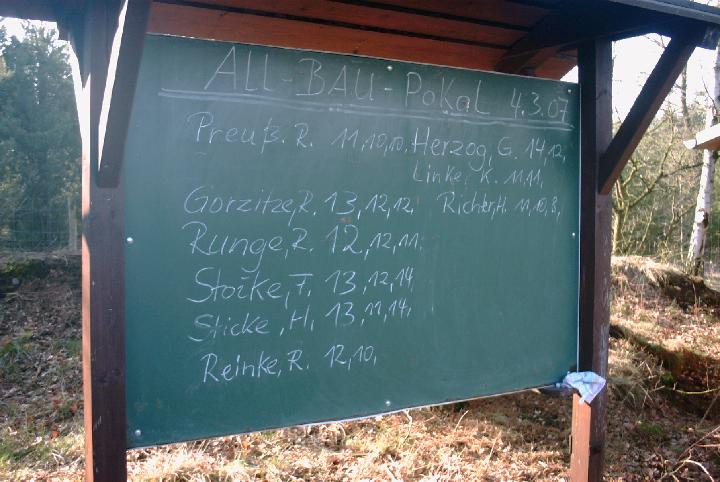 ALL-BAU-PoKaL 4.3.07
Preuß. R. 11,10,10, Herzog, G. 14,12,
Linke, K. 11,11,
Gorzitze, R. 13,12,12, Richter, H. 11,10,8,
Runge, R. 12,12,11,
Storke, F. 13,12,14
Sticke, H. 13,11,14,
Reinke, R. 12,10,